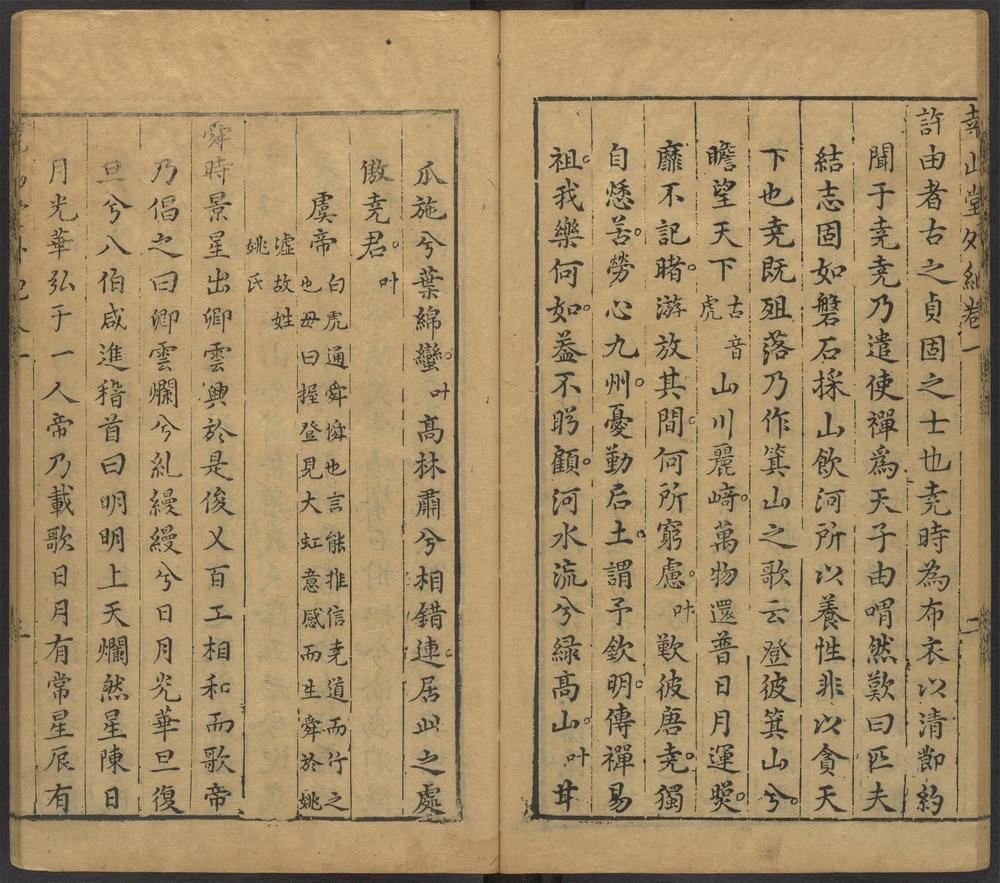 堯山堂外紀卷一 二
許由者古之貞固之士也堯時為布衣以清節約
聞于堯堯乃遣使禪爲天子由喟然歎曰匹夫
結志固如磐石採山飲河所以養性非以貪天
下也堯既殂落乃作箕山之歌云登彼箕山兮
瞻望天下古音虎山川麗崎萬物還普日月運照
靡不記睹游放其間何所窮慮叶歎彼唐堯獨
自愁苦勞心九州憂勤后土謂予欽明傳禪易
祖我樂何如葢不盻顧河水流兮綠高山叶甘
瓜施兮葉綿蠻叶高林肅兮相錯連居此之處
傲堯君叶
虞帝白虎通舜僢也言能推信堯道而行之
也母曰握登見大虹意感而生舜於姚
墟故姓
姚氏
舜時景星出卿雲興於是俊乂百工相和而歌帝
乃倡之曰卿雲爛兮糺縵縵兮日月光華旦復
旦兮八伯咸進稽首曰明明上天爛然星陳日
月光華弘于一人帝乃載歌日月有常星辰有